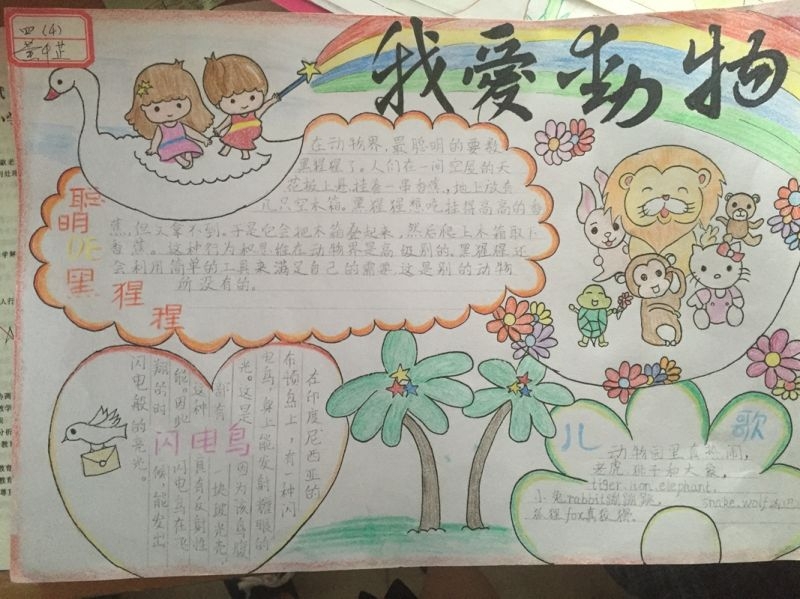 四（4）
我爱动物
在动物界，最聪明的要数
黑猩猩了。人们在一间空屋的天
花板上悬挂着一串香蕉，地上放着
几只空木箱。黑猩猩想吃挂得高高的香
蕉，但又拿不到。于是它会把木箱叠起来，然后爬上木箱取下
香蕉。这种行为和思维在动物界是高级别的。黑猩猩还
会利用简单的工具来满足自己的需要，这是别的动物
所没有的。
聪明
黑猩猩
闪电鸟
在印度尼西亚的
布顿岛上，有一种闪
电鸟，身上能发射耀眼的
光。这是因为该鸟腹
部有一块玻光壳，
这种具有反射性
能。因此闪电鸟在飞
翔的时候，能发出
闪电般的亮光。
儿歌
动物园里真热闹，
老虎狮子和大象，
tiger.lion.elephant.
小兔rabbit蹦蹦跳，
snake.wolf
狐狸fox真狡猾。